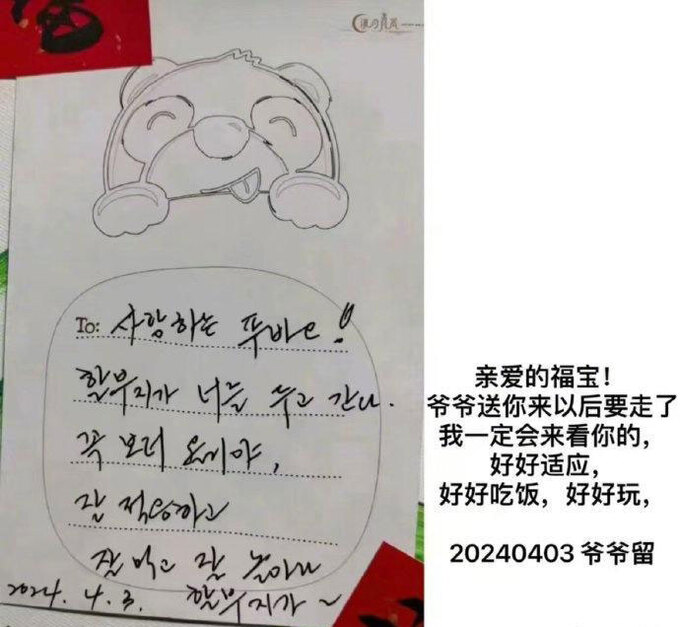 To: 사랑하는 푸바오!
할부지가 너를 두고 간다.
꼭 보러 올거야,
잘 적응하고
잘 먹고 잘 놀아라
2024. 4. 3. 할부지가 ~
亲爱的福宝！
爷爷送你来以后要走了
我一定会来看你的，
好好适应，
好好吃饭，好好玩，
20240403 爷爷留